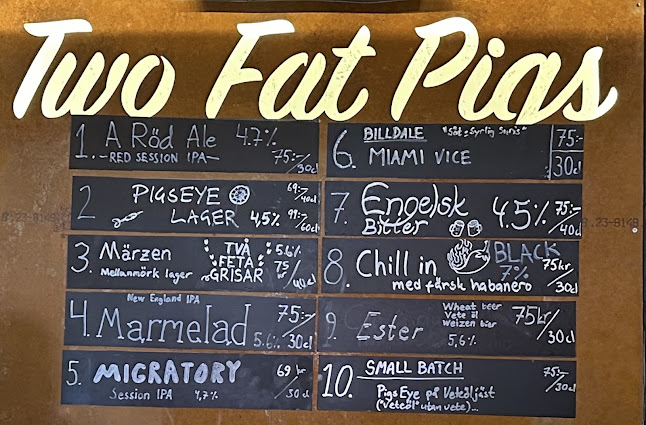 Two Fat Pigs
1. A Röd Ale 4.7%
-RED SESSION IPA- 75:-/30cl
2 PIGSEYE 69:-/40cl
LAGER 4,5% 99:-/60cl
3. Märzen TVÅ FETA GRISAR 5.6%
Mellanmörk lager 75/40cl
New England IPA
4. Marmelad 5.6% 75:-/30cl
5. MIGRATORY 69 kr
Session IPA 4,7% 30cl
6. BILLDALE 75:-
MIAMI VICE 30cl
7. Engelsk 4.5% 75:-/40cl
Bitter
8. Chill in BLACK 7% 75kr/30cl
med färsk habanero
9. Ester 5,6% 75kr/30cl
Wheat beer
Vete öl
Weizen bier
10. SMALL BATCH 75:-/30cl
PigsEye på Veteöljäst
("Veteöl" utan vete)...